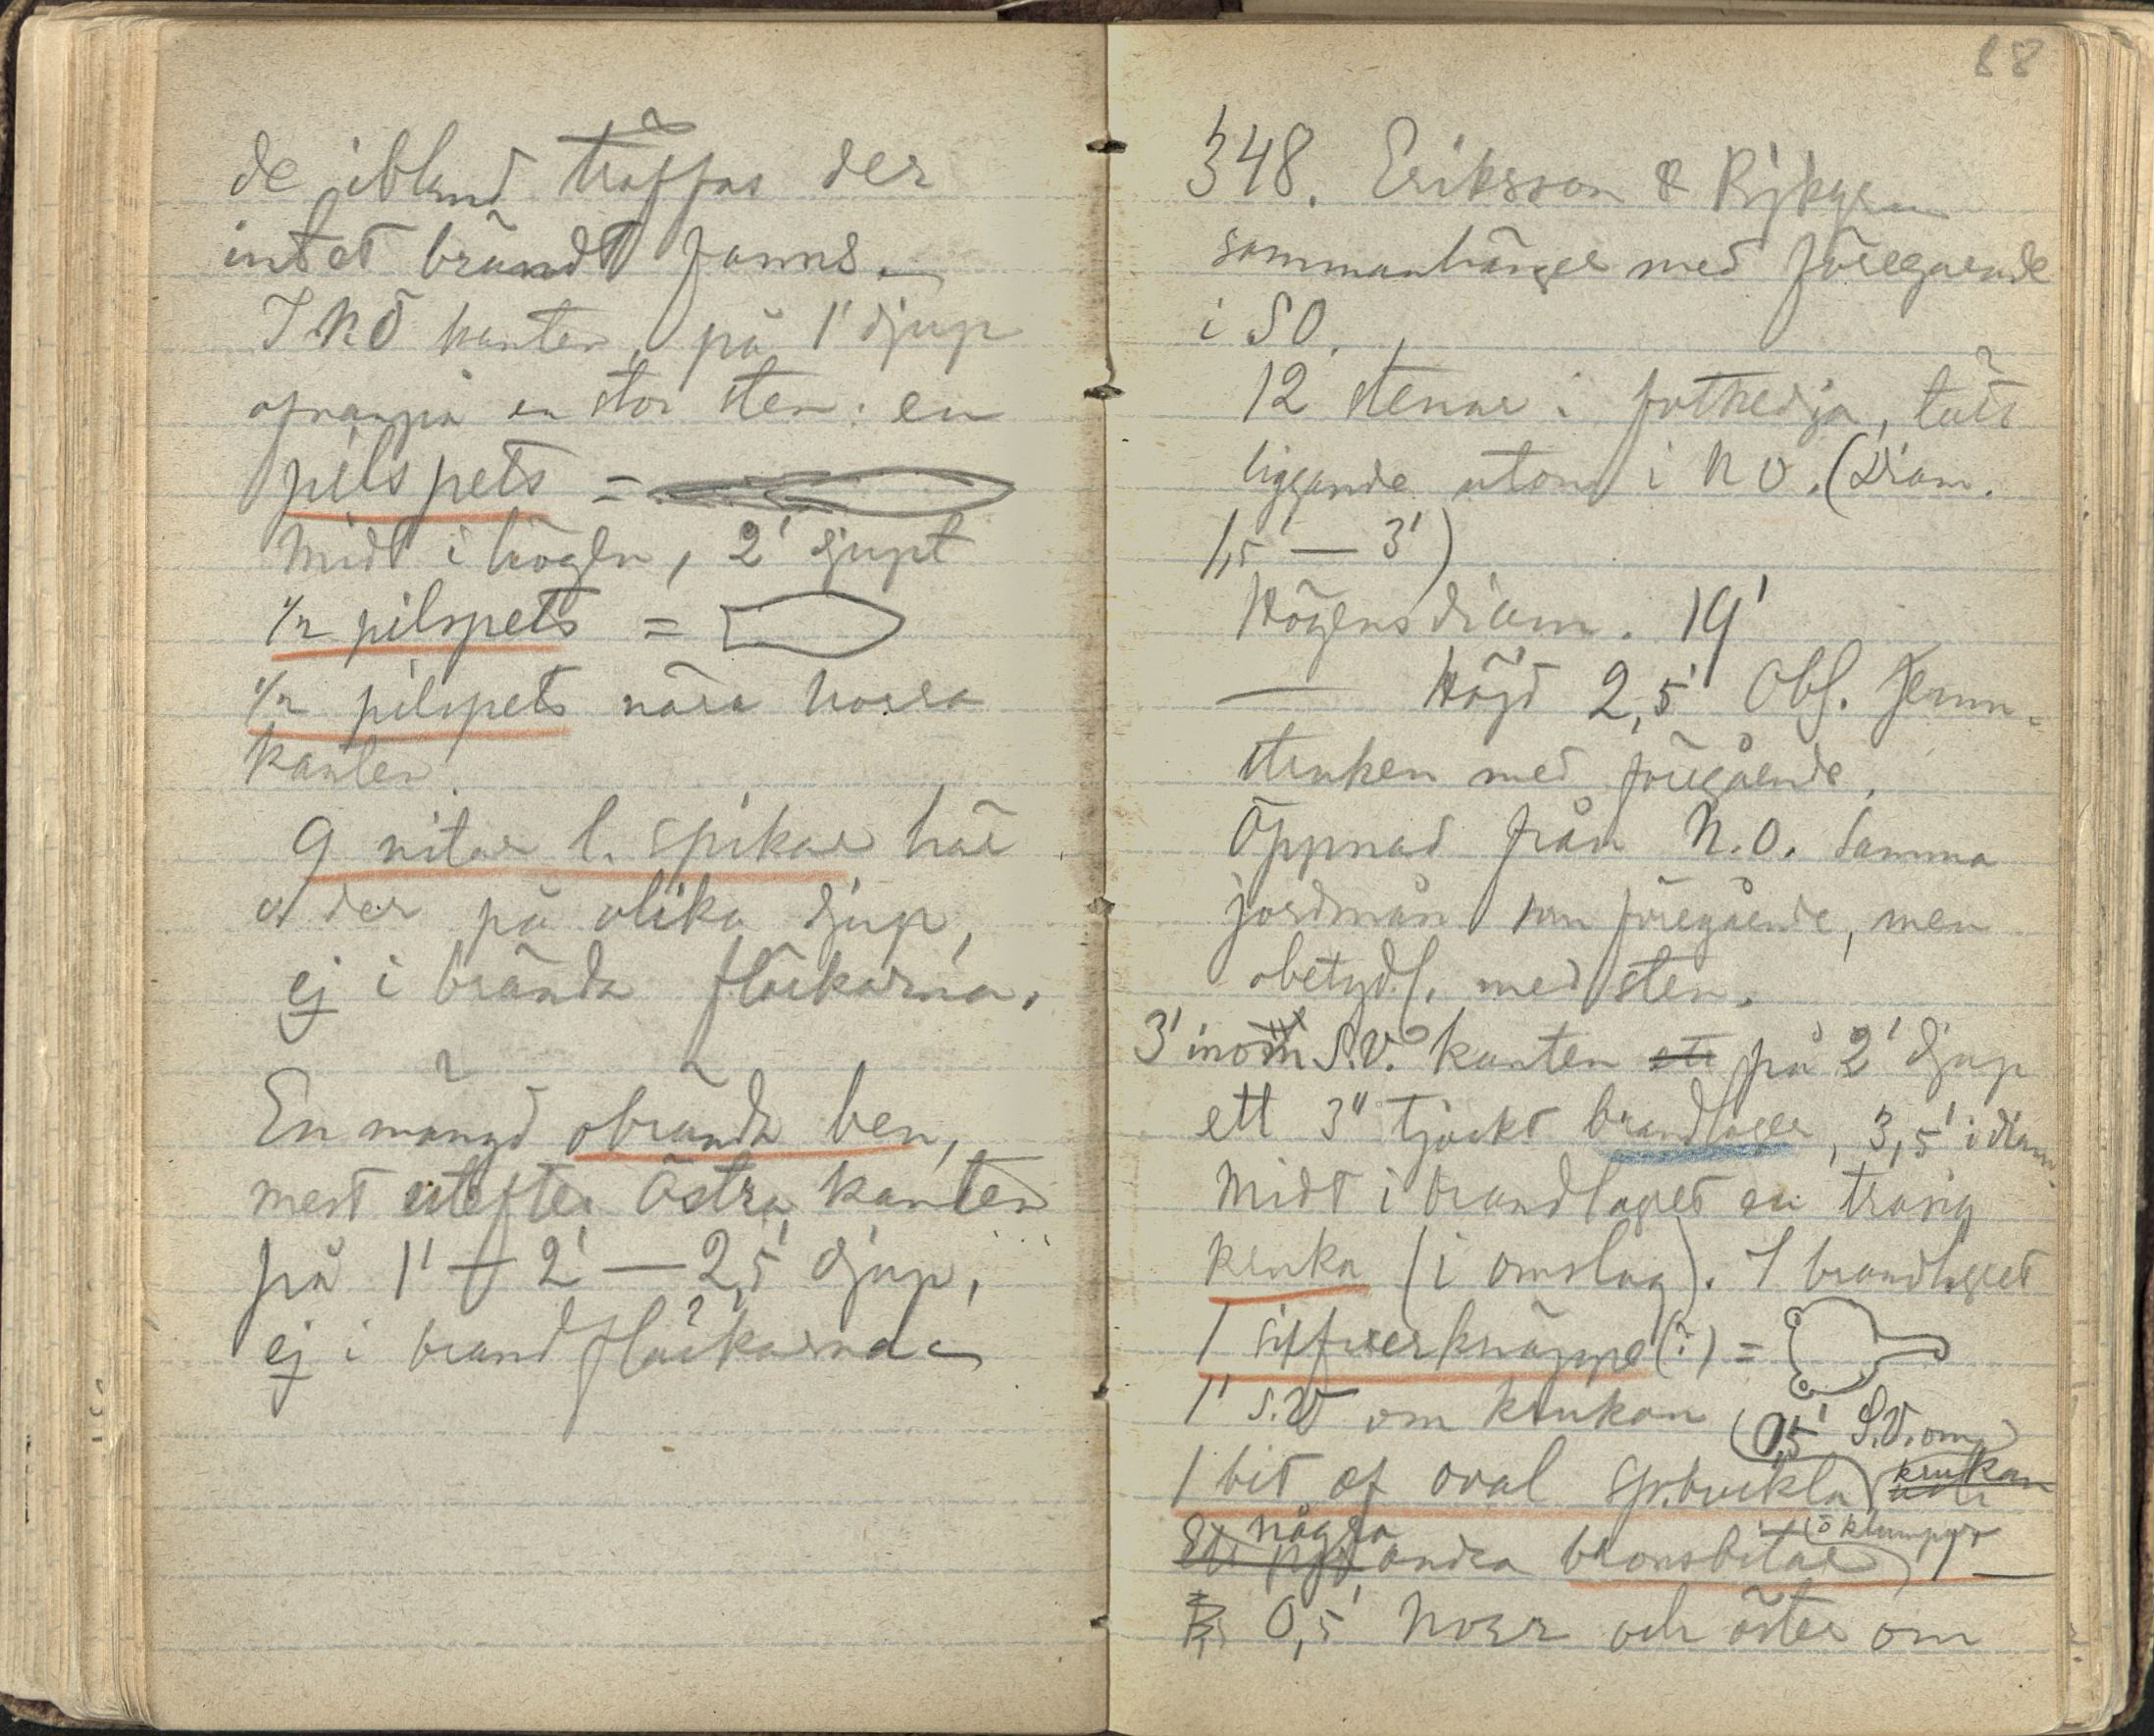 de ibland träffas der
intet brändt fanns.
I NÖ kanten, på 1' djup
ofvanpå en stor sten: en
pilspets =
Midt i högen, 2' djupt
1/2 pilspets =
1/2 pilspets nära norra
kanten.
9 nitar l. spikar här
o der på olika djup,
ej i brända fläckarna.
En mängd obrända ben,
mest utefter Östra kanten
på 1' — 2' — 2,5' djup,
ej i brandfläckarna
88
348. Eriksson &
sammanhänger med föregående
i SO.
12 stenar i fotkedja, tätt
liggande utom i NO. (Diam.
1,5' — 3')
Högens diam. 19'
— Höjd 2,5' Obs. Jemn-
struken med föregående.
Öppnad från N.O. Samma
jordmån som föregående, men
obetydl. med sten.
3' inom S.V. kanten på 2' djup
ett 3" tjockt brandlager, 3,5' i diam.
Midt i brandlagret en trasig
kruka (i omslag). I brandlagret
1 silfverknäppe (?) =
1' S.V om krukan
(0,5' S.V. om
1 bit af oval sp.buckla krukan
några andra bronsbitar (o klumpar)
0,5' Norr och öster om